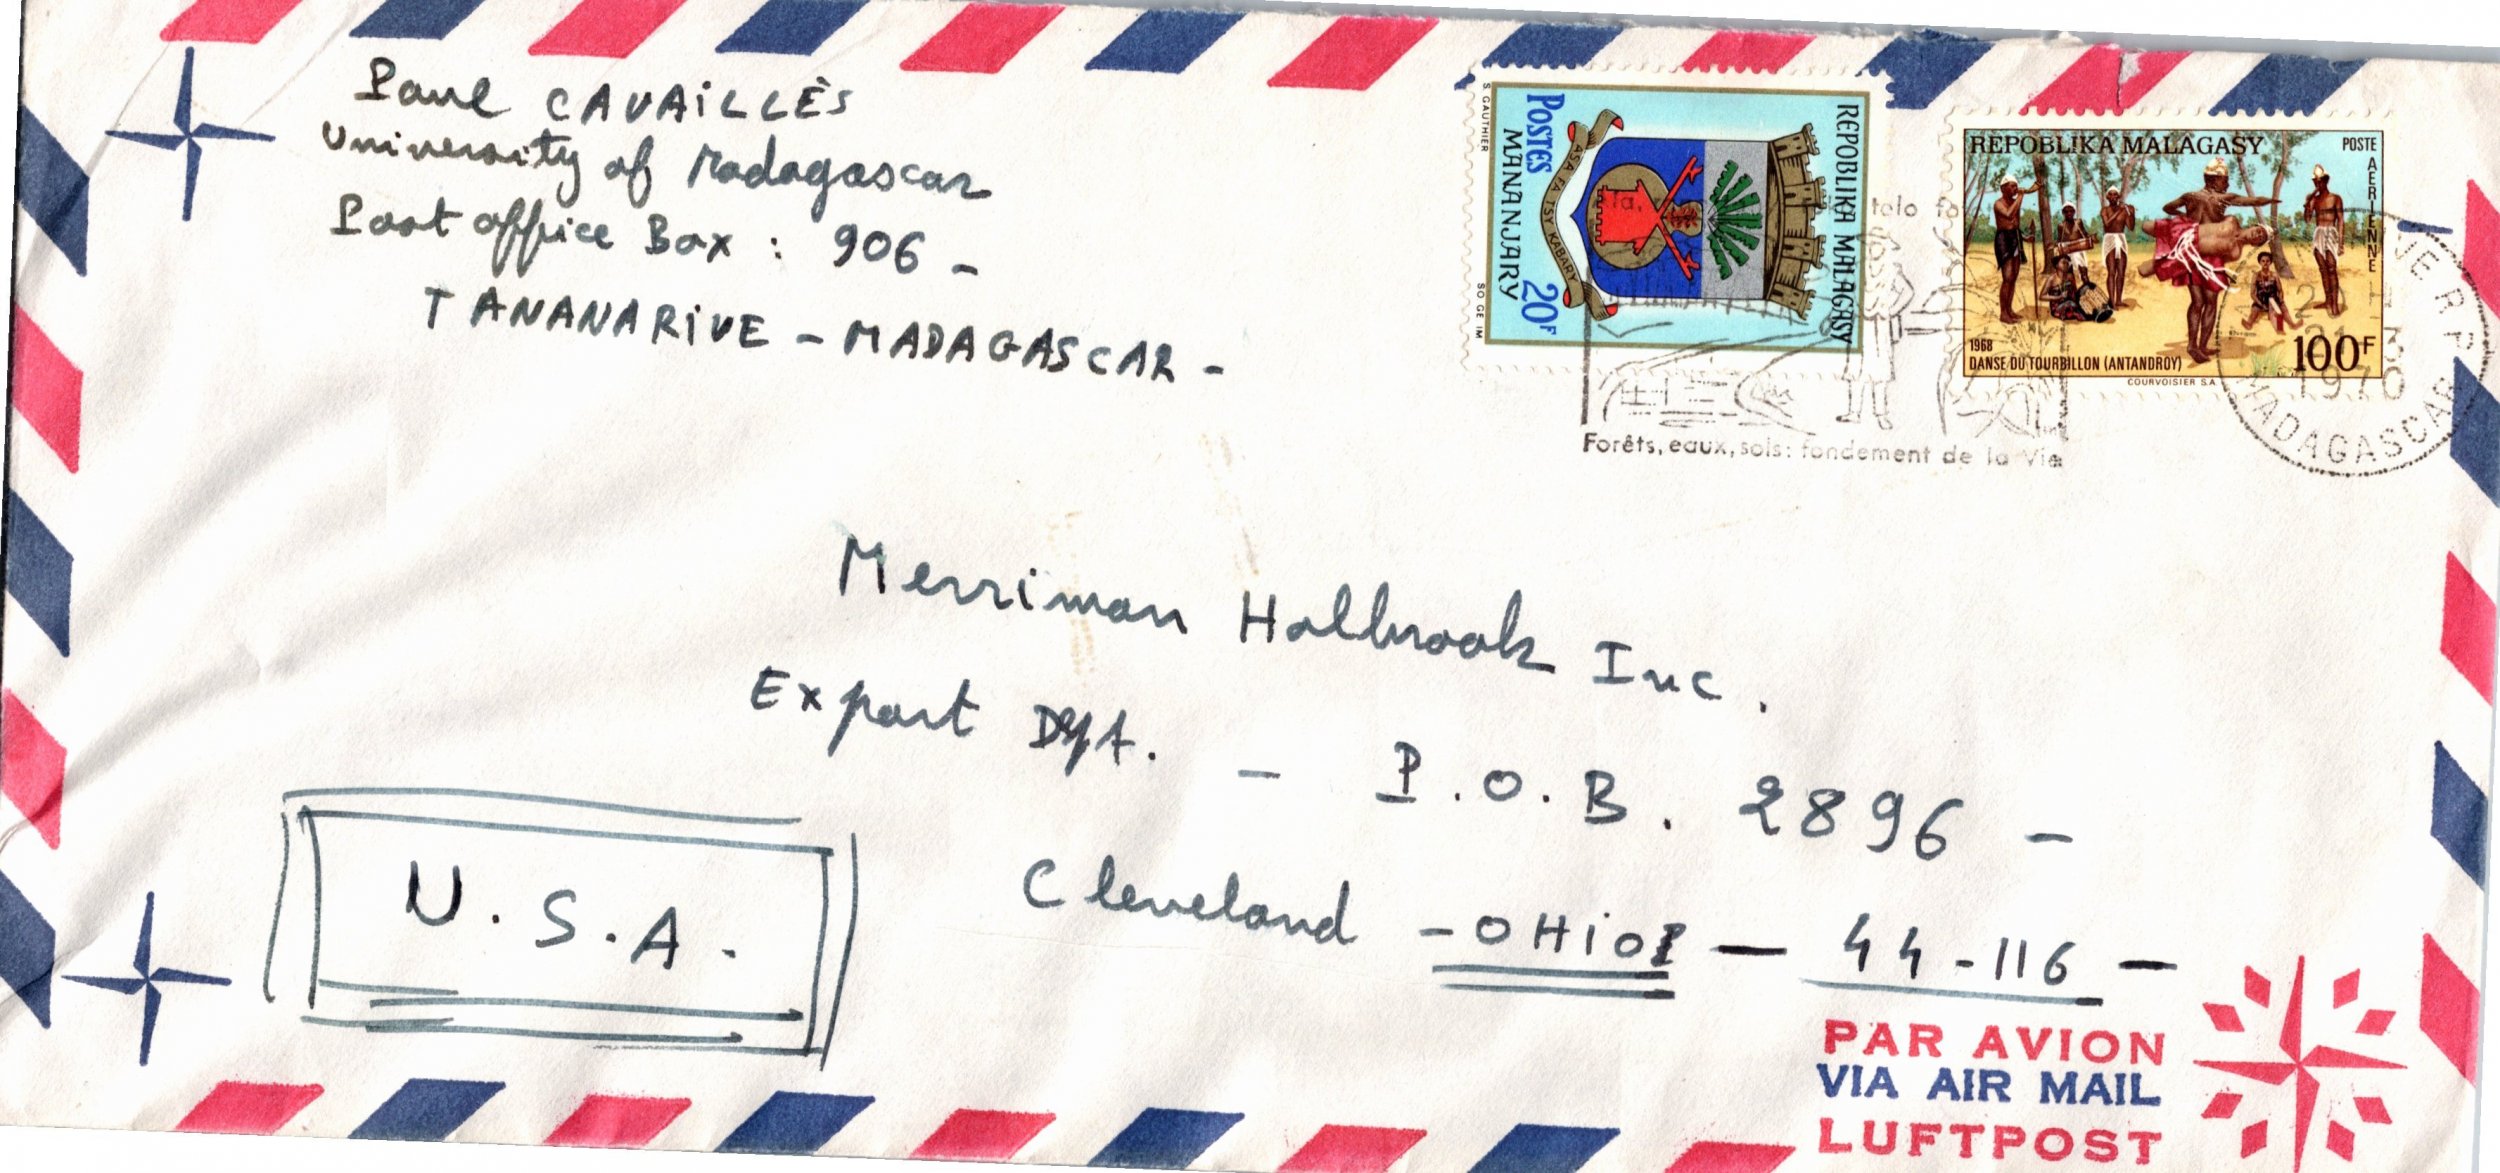 Paul CAVAILLÈS
University of Madagascar
Post office Box : 906 -
TANANARIVE - MADAGASCAR -
S. GAUTHIER
SO GE IM
REPOBLIKA MALAGASY
POSTES 20F
MANANJARY
ASA FA TSY KABARY
REPOBLIKA MALAGASY
POSTE AERIENNE
1968
DANSE DU TOURBILLON (ANTANDROY)
100F
COURVOISIER S.A.
telo
Forêts, eaux, sols: fondement de la Vie
1970
MADAGASCAR
Merriman Holbrook Inc.
Export Dpt. - P.O.B. 2896 -
Cleveland - OHiO - 44-116 -
U.S.A.-
PAR AVION
VIA AIR MAIL
LUFTPOST